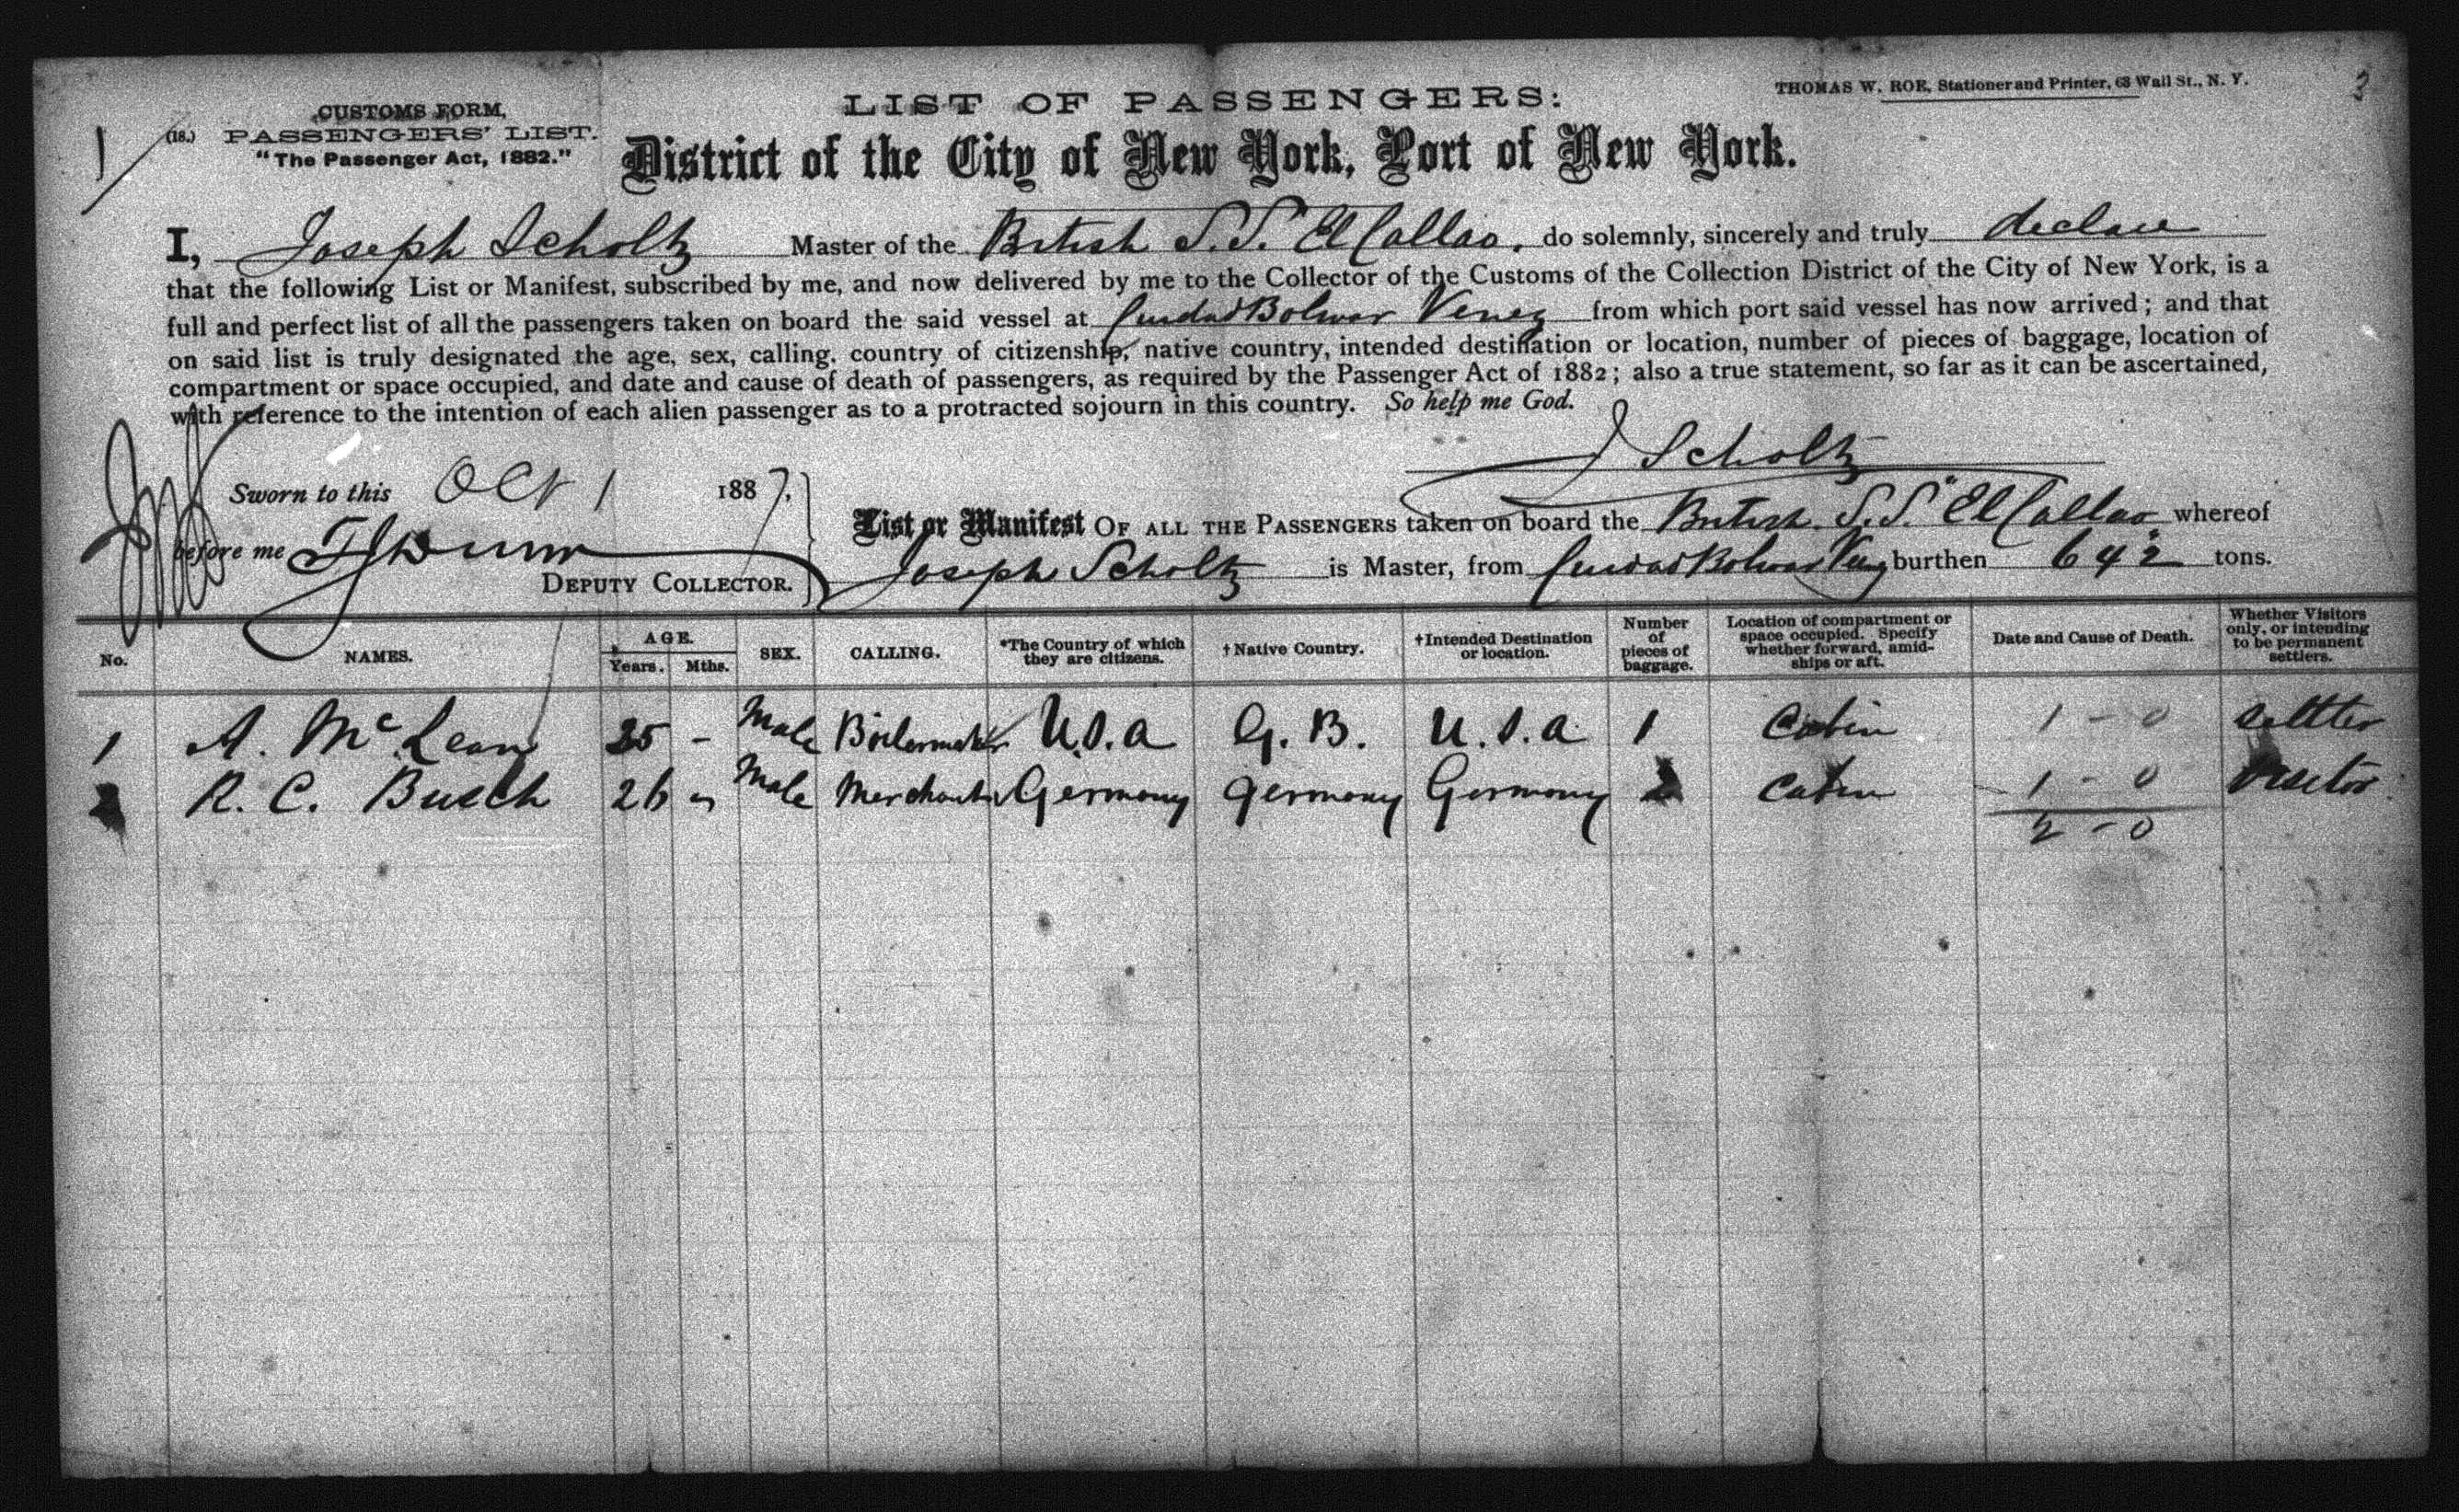 CUSTOMS FORM,
(18.) PASSENGERS' LIST.
"The Passenger Act, 1882."
LIST OF PASSENGERS:
THOMAS W. ROE, Stationer and Printer, 63 Wall St., N. Y.
3
1
District of the City of New York, Port of New York.
I, Joseph Scholtz Master of the British S.S. El Callao, do solemnly, sincerely and truly declare
that the following List or Manifest, subscribed by me, and now delivered by me to the Collector of the Customs of the Collection District of the City of New York, is a
full and perfect list of all the passengers taken on board the said vessel at Ciudad Bolivar Venez from which port said vessel has now arrived; and that
on said list is truly designated the age, sex, calling, country of citizenship, native country, intended destination or location, number of pieces of baggage, location of
compartment or space occupied, and date and cause of death of passengers, as required by the Passenger Act of 1882; also a true statement, so far as it can be ascertained,
with reference to the intention of each alien passenger as to a protracted sojourn in this country. So help me God.
J Scholtz
Sworn to this Oct 1 1887.
before me
DEPUTY COLLECTOR.
List or Manifest OF ALL THE PASSENGERS taken on board the British S.S. "El Callao" whereof
Joseph Scholtz is Master, from Ciudad Bolivar Venz burthen 642 tons.
No. NAMES. AGE. Years. Mths. SEX. CALLING. *The Country of which they are citizens. †Native Country. †Intended Destination or location. Number of pieces of baggage. Location of compartment or space occupied. Specify whether forward, amidships or aft. Date and Cause of Death. Whether Visitors only, or intending to be permanent settlers.
1 A. McLean 35 - Male Boilermaker U.S.a G. B. U.S.a 1 Cabin 1 - 0 Settler
2 R. C. Busch 26 " Male Merchant Germany Germany Germany 2 Cabin 1 - 0 Visitor
2 - 0